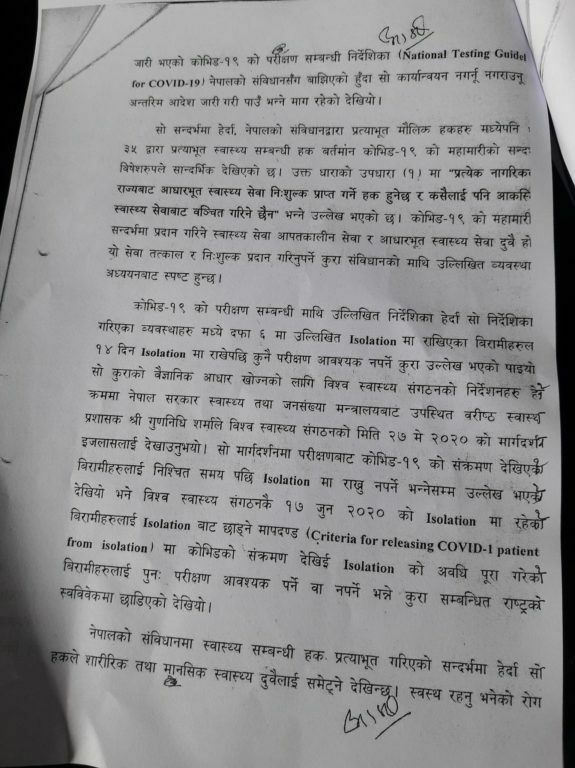 जारी भएको कोभिड-१९ को परीक्षण सम्बन्धी निर्देशिका (National Testing Guidel
for COVID-19) नेपालको संविधानसँग बाझिएको हुँदा सो कार्यान्वयन नगर्नू नगराउनू
अन्तरिम आदेश जारी गरी पाउँ भन्ने माग रहेको देखियो।
सो सन्दर्भमा हेर्दा, नेपालको संविधानद्वारा प्रत्याभूत मौलिक हकहरु मध्येपनि
३५ द्वारा प्रत्याभूत स्वास्थ्य सम्बन्धी हक बर्तमान कोभिड-१९ को महामारीको सन्द
बिषेशरुपले सान्दर्भिक देखिएको छ। उक्त धाराको उपधारा (१) मा "प्रत्येक नागरिक
राज्यबाट आधारभूत स्वास्थ्य सेवा निःशुल्क प्राप्त गर्ने हक हुनेछ र कसैलाई पनि आकसि
स्वास्थ्य सेवाबाट बञ्चित गरिने छैन" भन्ने उल्लेख भएको छ। कोभिड-१९ को महामारी
सन्दर्भमा प्रदान गरिने स्वास्थ्य सेवा आपतकालीन सेवा र आधारभूत स्वास्थ्य सेवा दुवै हो
यो सेवा तत्काल र निःशुल्क प्रदान गरिनुपर्ने कुरा संविधानको माथि उल्लिखित व्यवस्था
अध्ययनबाट स्पष्ट हुन्छ।
कोभिड-१९ को परीक्षण सम्बन्धी माथि उल्लिखित निर्देशिका हेर्दा सो निर्देशिका
गरिएका व्यवस्थाहरु मध्ये दफा ६ मा उल्लिखित Isolation मा राखिएका बिरामीहरुल
१४ दिन Isolation मा राखेपछि कुनै परीक्षण आवश्यक नपर्ने कुरा उल्लेख भएको पाइयो
सो कुराको वैज्ञानिक आधार खोज्नको लागि विश्व स्वास्थ्य संगठनको निर्देशनहरु हेर्ने
क्रममा नेपाल सरकार स्वास्थ्य तथा जनसंख्या मन्त्रालयबाट उपस्थित वरीष्ठ स्वास्थ्य
प्रशासक श्री गुणनिधि शर्माले विश्व स्वास्थ्य संगठनको मिति २७ मे २०२० को मार्गदर्शन
इजलासलाई देखाउनुभयो। सो मार्गदर्शनमा परीक्षणबाट कोभिड-१९ को संक्रमण देखिएको
बिरामीहरुलाई निश्चित समय पछि Isolation मा राख्नु नपर्ने भन्नेसम्म उल्लेख भएको
देखियो भने विश्व स्वास्थ्य संगठनकै १७ जुन २०२० को Isolation मा रहेको
बिरामीहरुलाई Isolation बाट छाड्ने मापदण्ड (Criteria for releasing COVID-1 patient
from isolation) मा कोभिडको संक्रमण देखिई Isolation को अवधि पूरा गरेको
बिरामीहरुलाई पुनः परीक्षण आवश्यक पर्ने वा नपर्ने भन्ने कुरा सम्बन्धित राष्ट्रको
स्वविवेकमा छाडिएको देखियो।
नेपालको संविधानमा स्वास्थ्य सम्बन्धी हक प्रत्याभूत गरिएको सन्दर्भमा हेर्दा सो
हकले शारीरिक तथा मानसिक स्वास्थ्य दुवैलाई समेट्ने देखिन्छ। स्वस्थ रहनु भनेको रोग